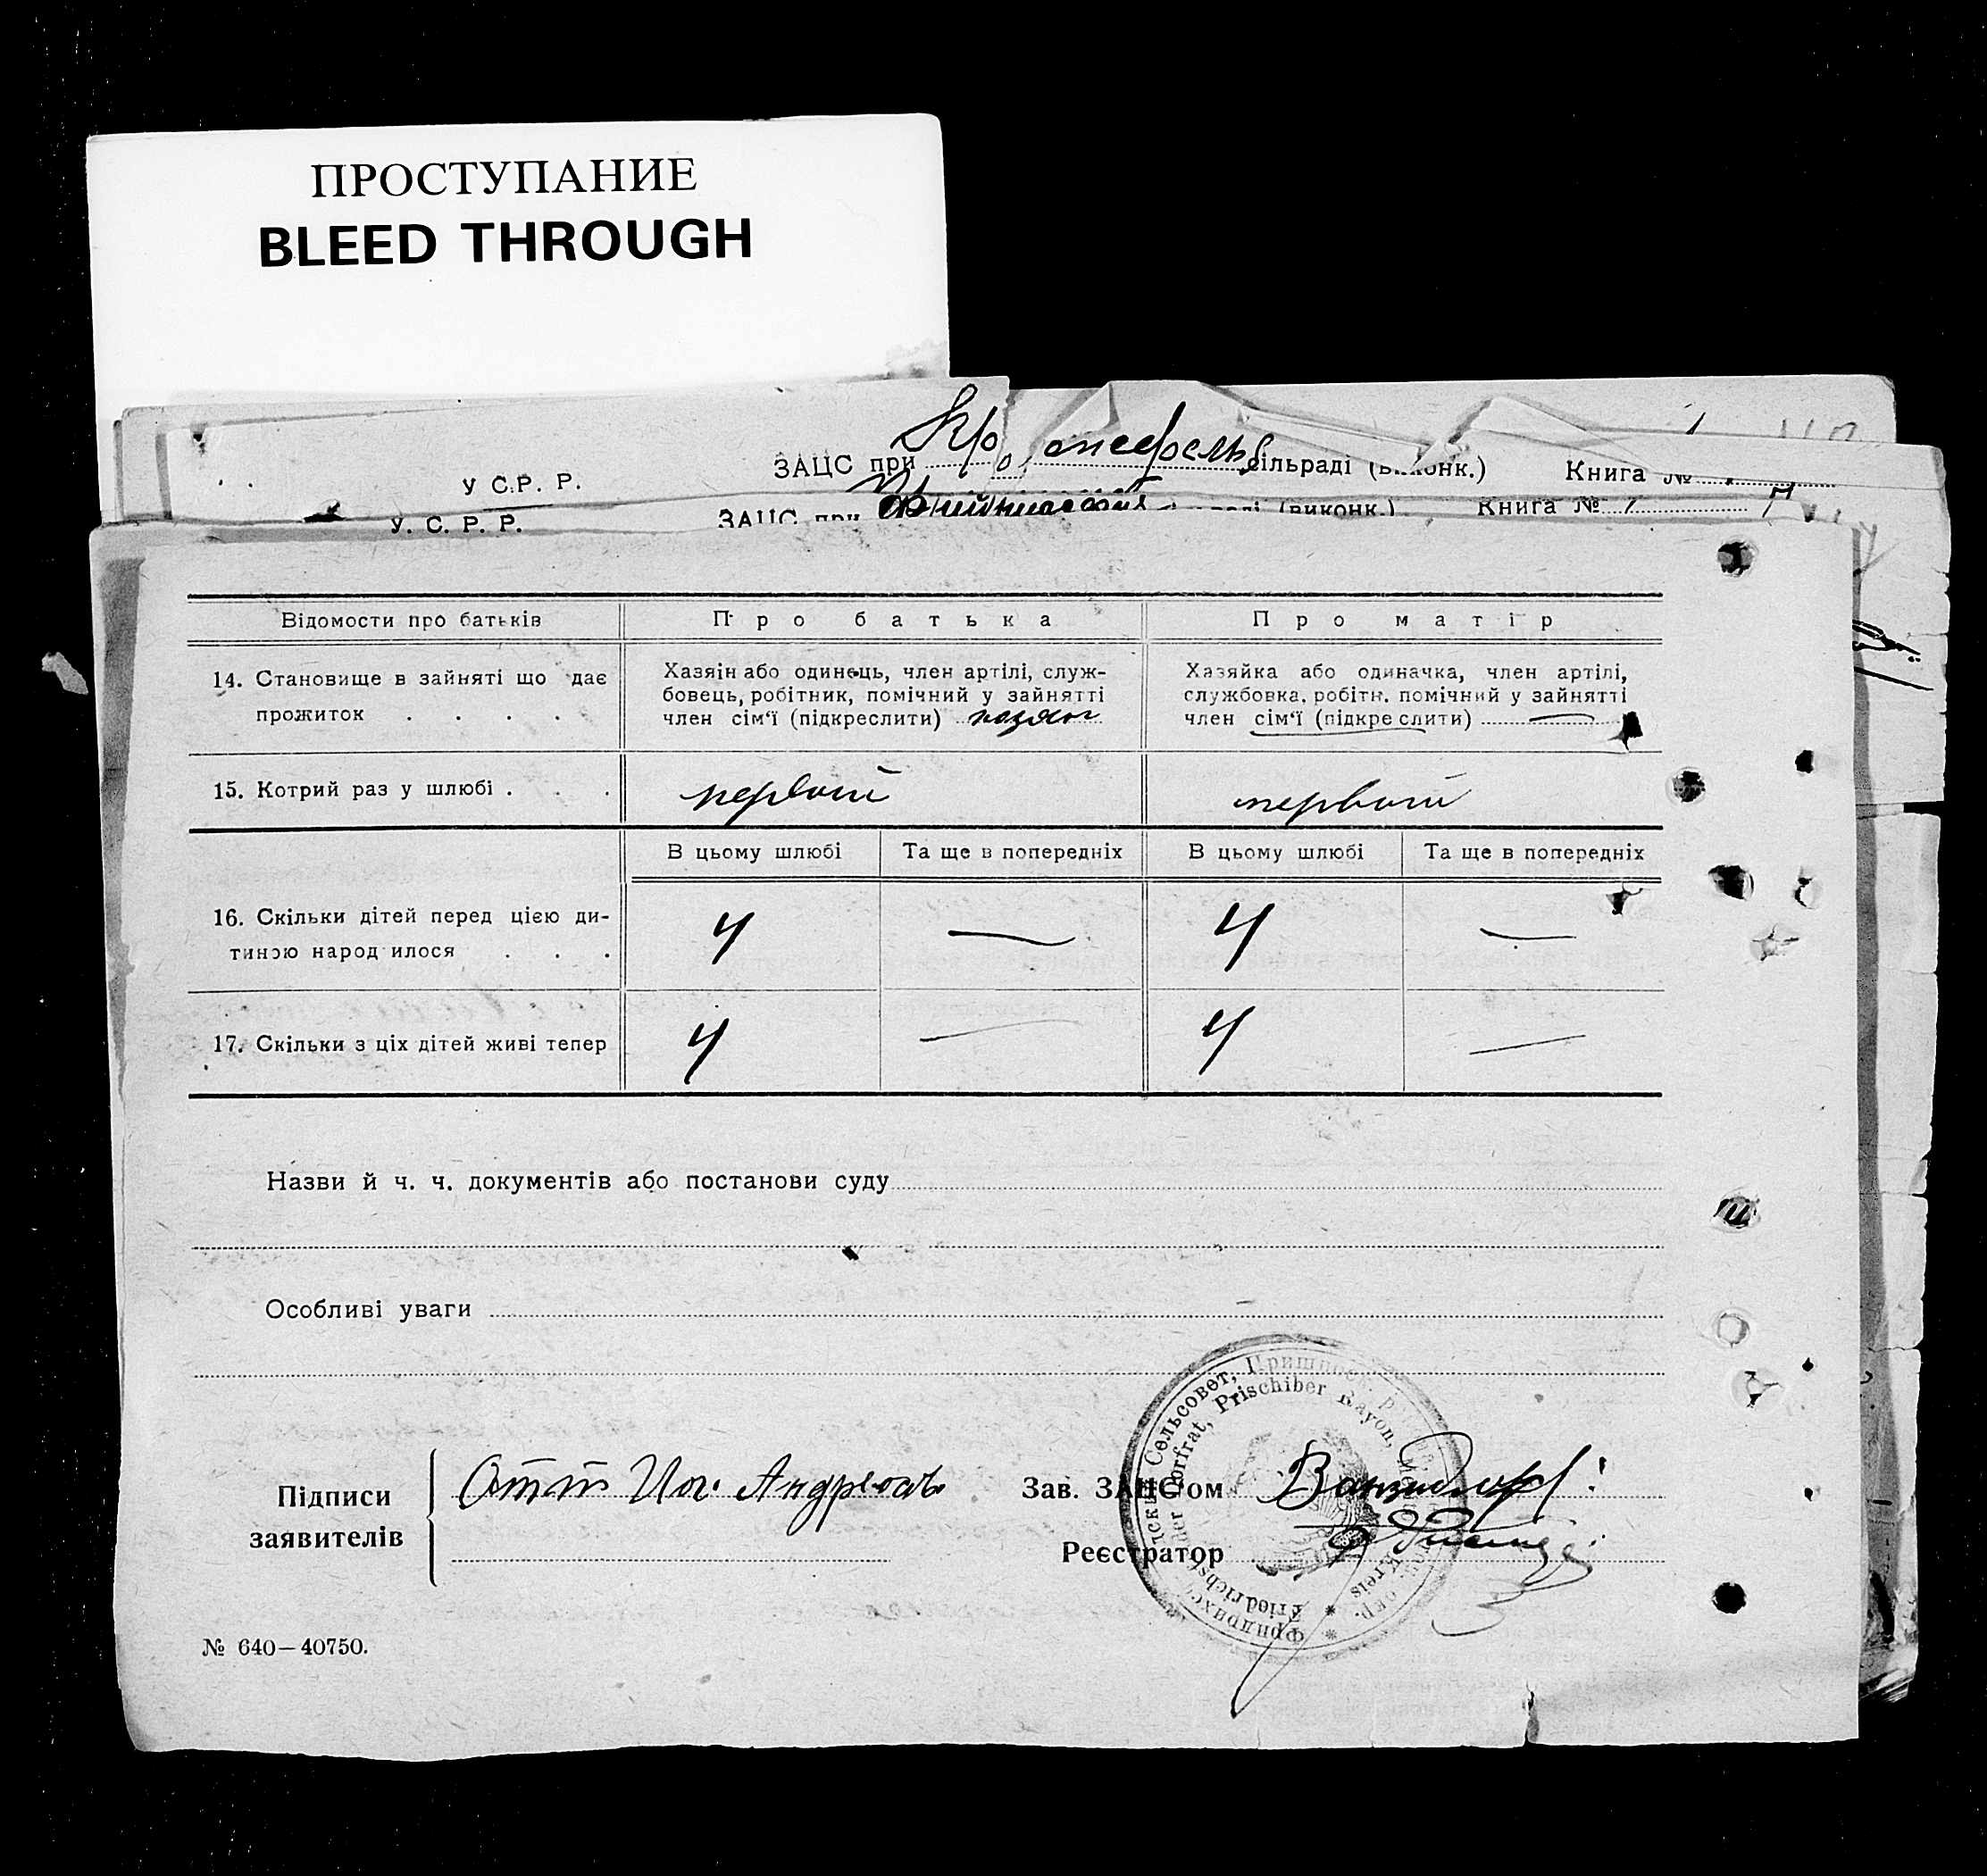 ПРОСТУПАНИЕ
BLEED THROUGH
У С.Р. Р. ЗАЦС при сільраді (виконк.) Книга №
У. С. Р. Р. ЗАЦС при (виконк.) Книга №
Відомости про батьків Про батька Про матір
14. Становище в зайняті що дає прожиток . . . .
Хазяїн або одинець, член артілі, служ-
бовець, робітник, помічний у зайнятті
член сім'ї (підкреслити) хозяин
Хазяйка або одиначка, член артілі,
службовка, робітн. помічний у зайнятті
член сім'ї (підкреслити) —
15. Котрий раз у шлюбі . . . первый первый
В цьому шлюбі Та ще в попередніх В цьому шлюбі Та ще в попередніх
16. Скільки дітей перед цією ди-
тиною народилося . . . 4 — 4 —
17. Скільки з ціх дітей живі тепер 4 — 4 —
Назви й ч. ч. документів або постанови суду
Особливі уваги
Підписи
заявителів
Отт Иог. Андреас
Зав. ЗАЦС'ом
Реєстратор
Сельсовет, Пришиб
Dorfrat, Prischiber Rayon,
Kreis
№ 640—40750.